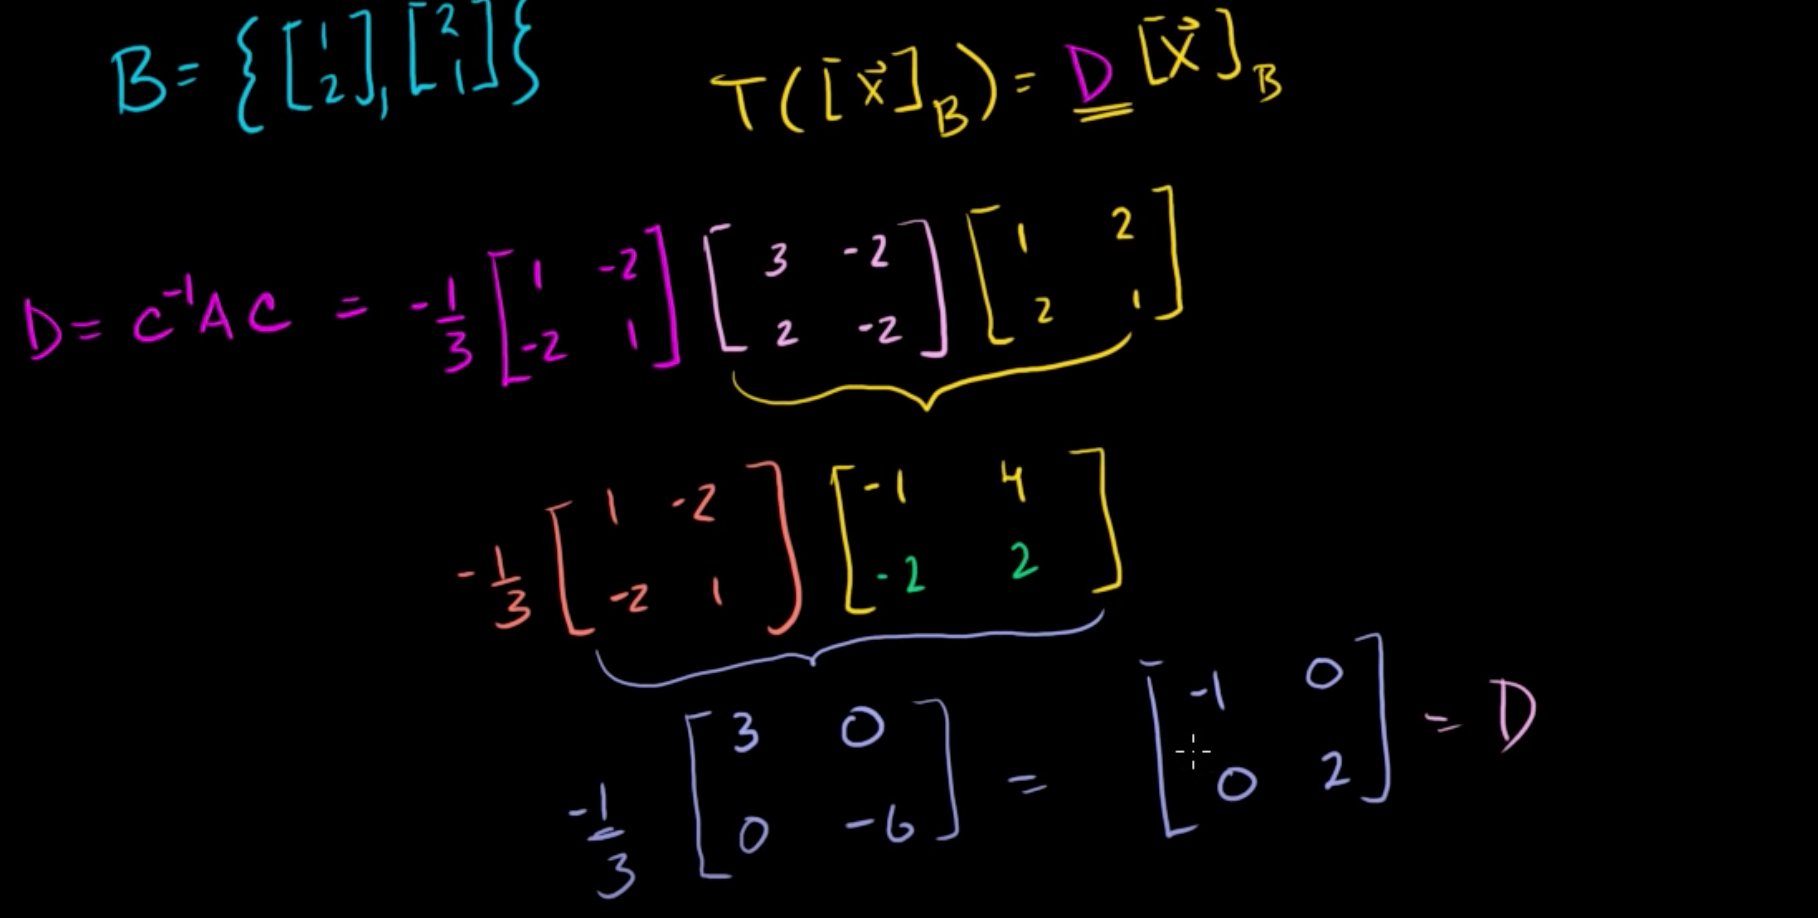 B = {[1 2], [2 1]} T([x⃗]_B) = D [x⃗]_B
D = C⁻¹AC = -1/3 [1 -2; -2 1] [3 -2; 2 -2] [1 2; 2 1]
-1/3 [1 -2; -2 1] [-1 4; -2 2]
-1/3 [3 0; 0 -6] = [-1 0; 0 2] = D